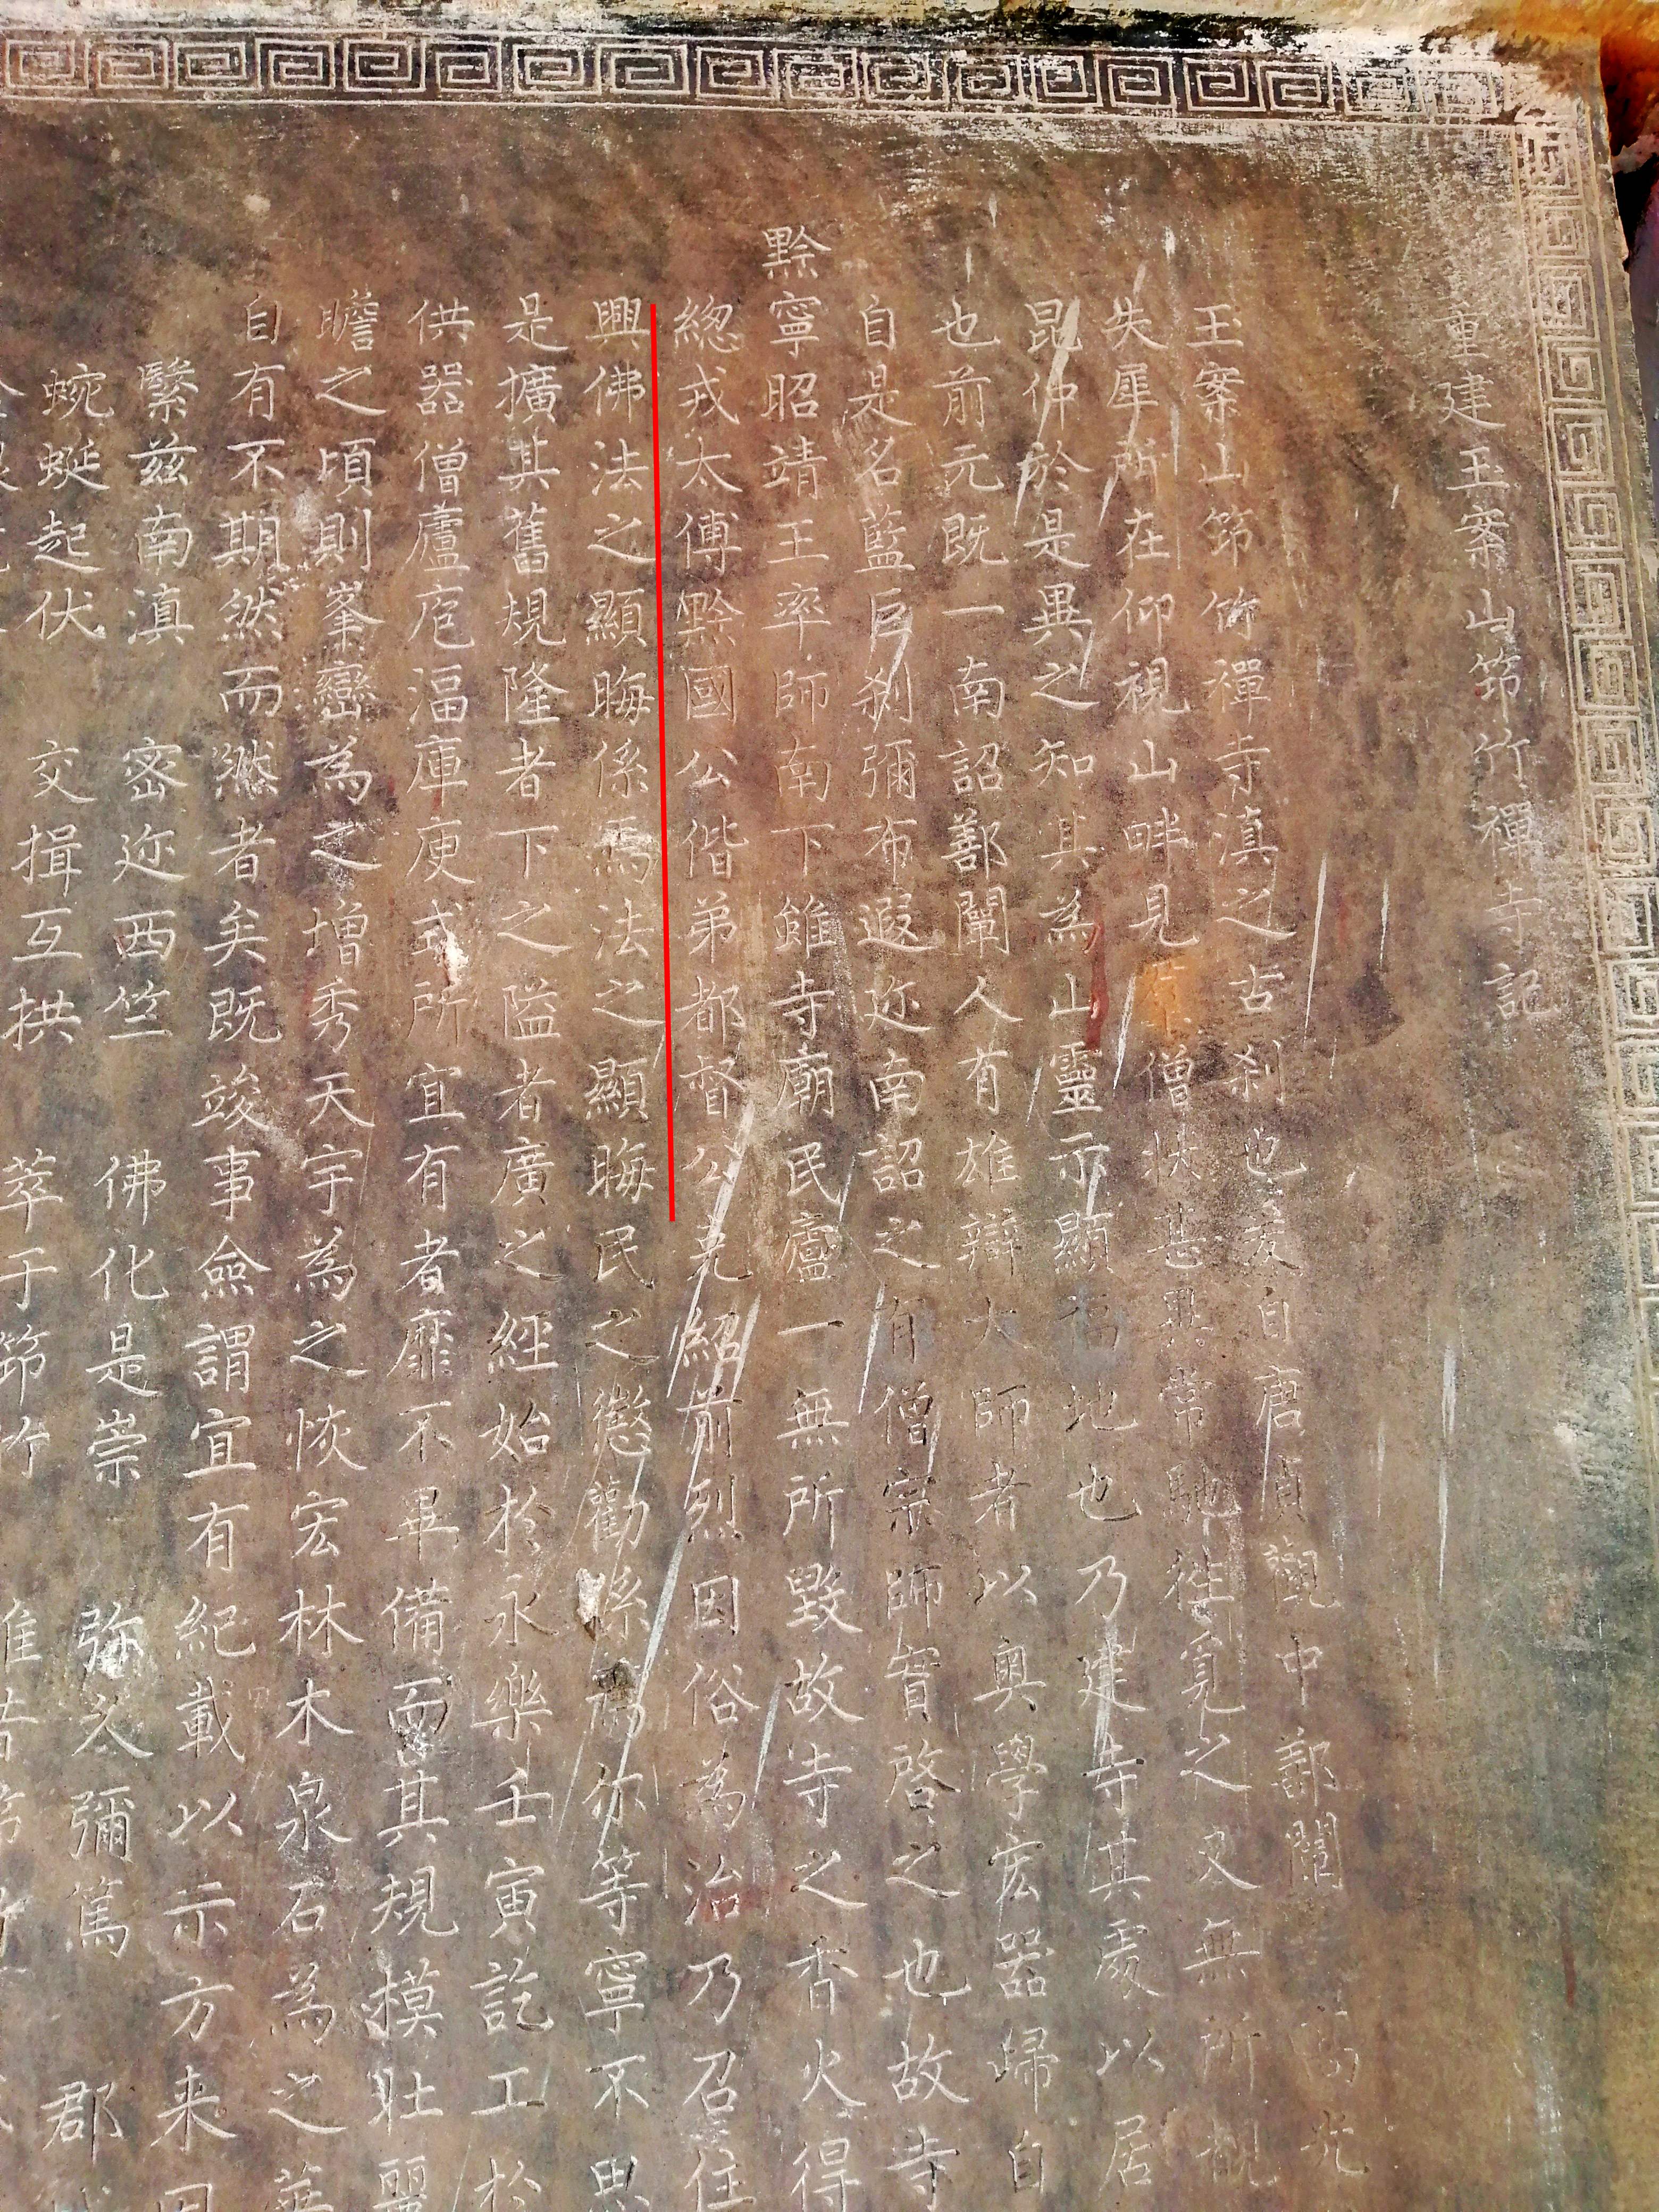 重建玉案山筇竹禪寺記
玉案山筇竹禪寺滇之古刹也爰自唐貞觀中鄯闡高光
失犀所在仰視山畔見僧狀甚異常馳往覓之又無所覩
昆仲於是異之知其為山靈示顯福地也乃建寺其處以居
也前元既一南詔鄯闡人有雄辯大師者以奥學宏器歸自
自是名藍巨刹彌布遐迩南詔之有僧宗師實啓之也故寺
黔寧昭靖王率師南下雖寺廟民廬一無所毀故寺之香火得
總戎太傅黔國公偕弟都督公克紹前烈因俗為治乃召住
興佛法之顯晦係焉法之顯晦民之懲勸係焉你等寧不思
是擴其舊規隆者下之隘者廣之經始於永樂壬寅訖工於
供器僧廬庖湢庫庾式所宜有者靡不畢備而其規模壯麗
瞻之頃則峯巒為之增秀天宇為之恢宏林木泉石為之
自有不期然而然者矣既竣事僉謂宜有紀載以示方来因
繄兹南滇 密迩西竺 佛化是崇 弥久彌篤
蜿蜒起伏 交揖互拱 萃于筇竹